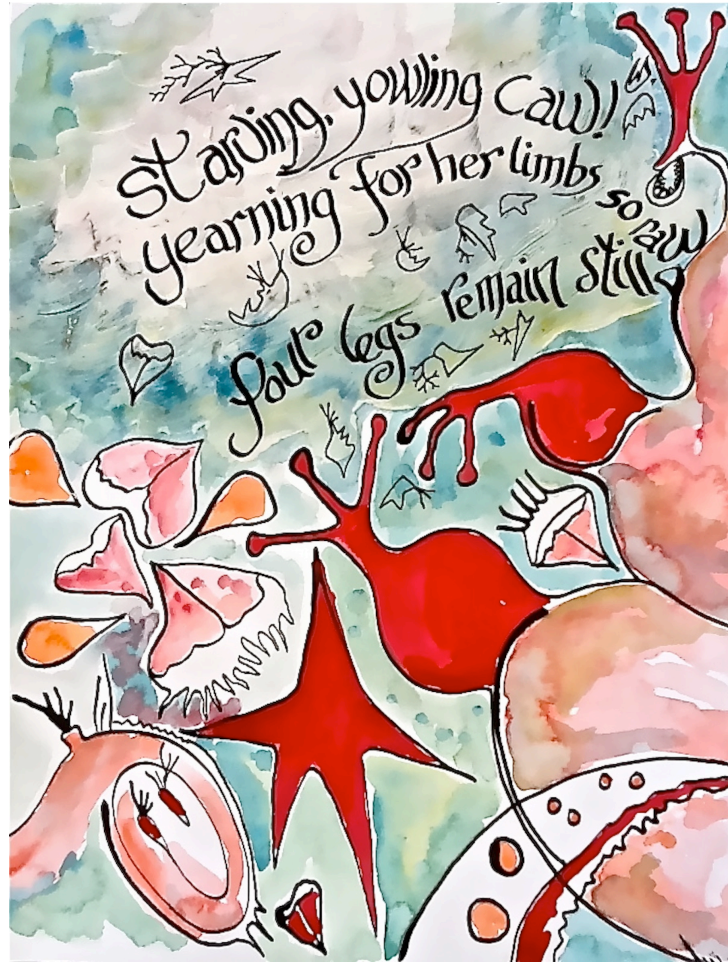 starving, yowling caw!
yearning for her limbs so raw
four legs remain still